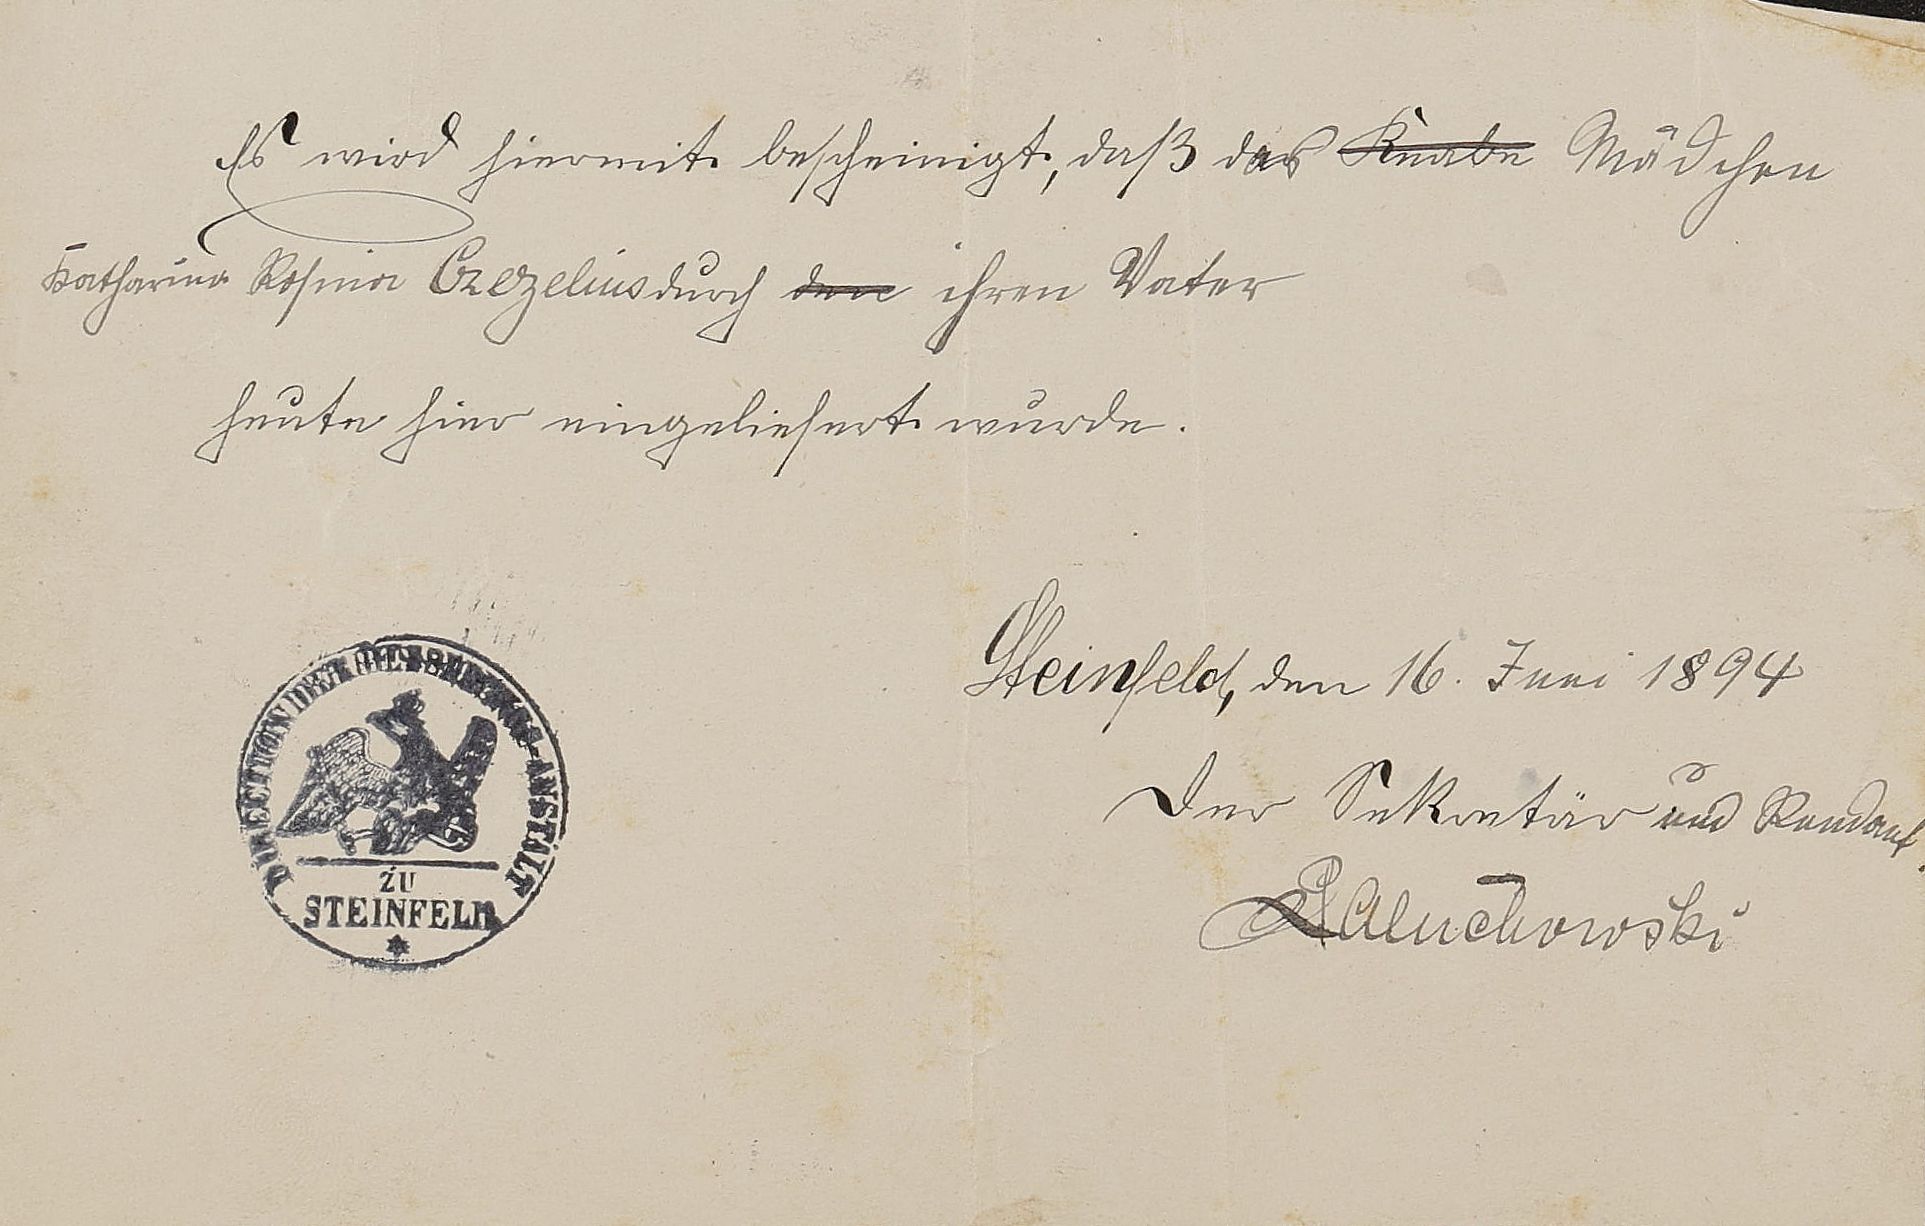 Es wird hiermit bescheinigt, daß das Knabe Mädchen
Katharina Rosina Czezelius durch den ihren Vater
heute hier eingeliefert wurde.
Steinfeld, den 16. Juni 1894
Der Sekretär und Rendant.
Paluchowski
DIRECTION DER BESSERUNGS-ANSTALT
ZU
STEINFELD